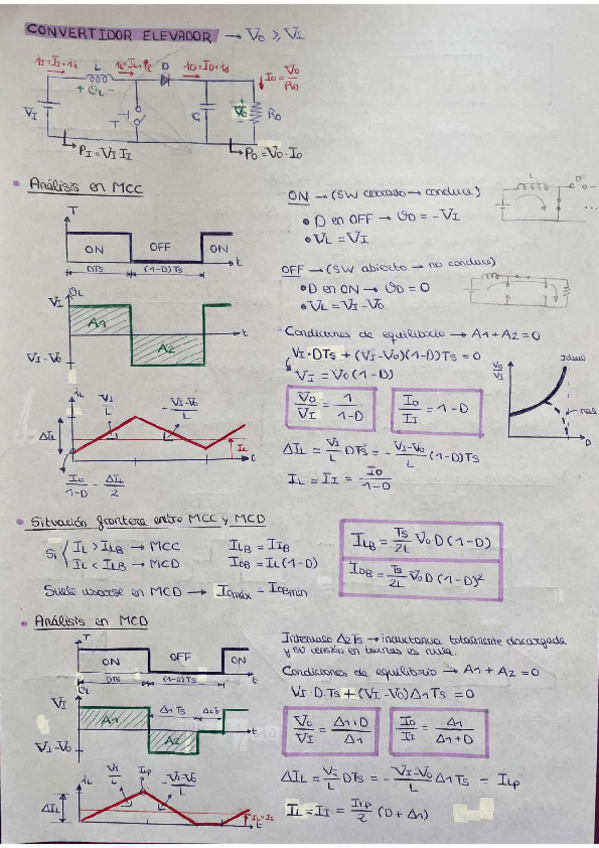 CONVERTIDOR ELEVADOR → Vo ≥ VI
iI = II + ii
L
iL = IL + iL
D
iD = ID + id
Io = Vo/Ro
+ ϑL -
VI
T
C
Vo
Ro
PI = VI II
Po = Vo · Io
• Análisis en MCC
T
ON OFF ON
t
DTs (1-D)Ts
ϑL
VI
A1
A2
VI-Vo
t
iL
VI/L
-VI-Vo/L
ΔIL
IL
t
Io/1-D - ΔIL/2
ON → (SW cerrado → conduce)
• D en OFF → ϑD = -VI
• VL = VI
OFF → (SW abierto → no conduce)
• D en ON → ϑD = 0
• VL = VI-Vo
L
D
Condiciones de equilibrio → A1 + A2 = 0
VI · DTs + (VI-Vo)(1-D)Ts = 0
VI = Vo(1-D)
Vo/VI = 1/1-D
Io/II = 1-D
Vo/VI
Ideal
real
D
ΔIL = VI/L DTs = - VI-Vo/L (1-D)Ts
IL = II = Io/1-D
• Situación frontera entre MCC y MCD
Si { IL > ILB → MCC
IL < ILB → MCD
ILB = IIB
IOB = IL(1-D)
ILB = Ts/2L Vo D (1-D)
IOB = Ts/2L Vo D (1-D)²
Suele usarse en MCD → Iomáx = IOBmín
• Análisis en MCD
T
ON OFF ON
DTs (1-D)Ts
t
ϑL
VI
A1
Δ1Ts Δ2Ts
A2
VI-Vo
t
iL
VI/L
ILp
-VI-Vo/L
ΔIL
IL = II
t
Intervalo Δ2Ts → inductancia totalmente descargada
y su tensión en bornas es nula.
Condiciones de equilibrio → A1 + A2 = 0
VI · D · Ts + (VI-Vo)Δ1Ts = 0
Vo/VI = Δ1+D/Δ1
Io/II = Δ1/Δ1+D
ΔIL = VI/L DTs = - VI-Vo/L Δ1Ts = ILp
IL = II = ILp/2 (D + Δ1)